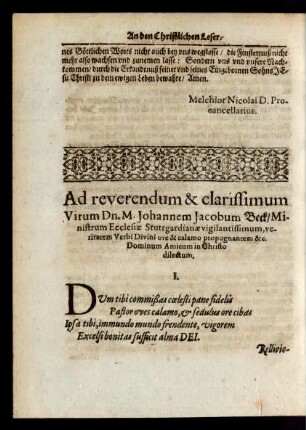 An den Christlichen Leser/
nes Göttlichen Worts nicht auch bey vns weglosse/ die Finsternuß nicht
mehr also wachsen vnd zunemen lasse: Sondern vns vnd vnsere Nach-
kommen/ durch die Erkandtnuß seiner vnd seines Eingebornen Sohns JE-
su Christi zu dem ewigen Leben bewahre/ Amen.
Melchior Nicolai D. Pro-
cancellarius.
Ad reverendum & clarissimum
Virum Dn. M. Johannem Jacobum Beck/ Mi-
nistrum Ecclesiæ Stutgardianæ vigilantissimum, ve-
ritatem Verbi Divini ore & calamo propognantem &c.
Dominum Amicum in Christo
dilectum.
I.
DUm tibi commissas cœlesti pane fidelis
Pastor oves calamo, & sedulus ore cibas
Ipsa tibi, immundo mundo frendente, vigorem
Excelsi bonitas sufficit alma DEI.
Relivio-